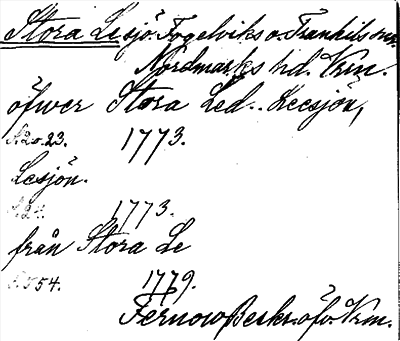 Stora Lesjö. Fogelviks o. Trankils snr.
Nordmarks hd. Vrm.
öfwer Stora Led- Leesjön,
S. 20. 23. 1773.
Lesjön.
S. 24. 1773.
från Stora Le
S. 554. 1779.
Fernow Beskr. öfv. Vrm.